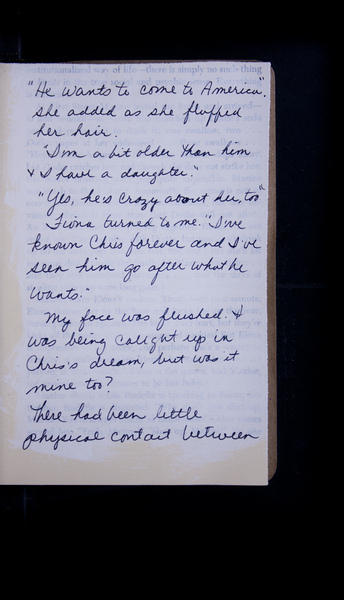 "He wants to come to America",
she added as she fluffed
her hair.
"I'm a bit older than him
& I have a daughter."
"Yes, he's crazy about her, too"
Fiona turned to me. "I've
known Chris forever and I've
seen him go after what he
wants."
My face was flushed. I
was being caught up in
Chris's dream, but was it
mine too?
There had been little
physical contact between